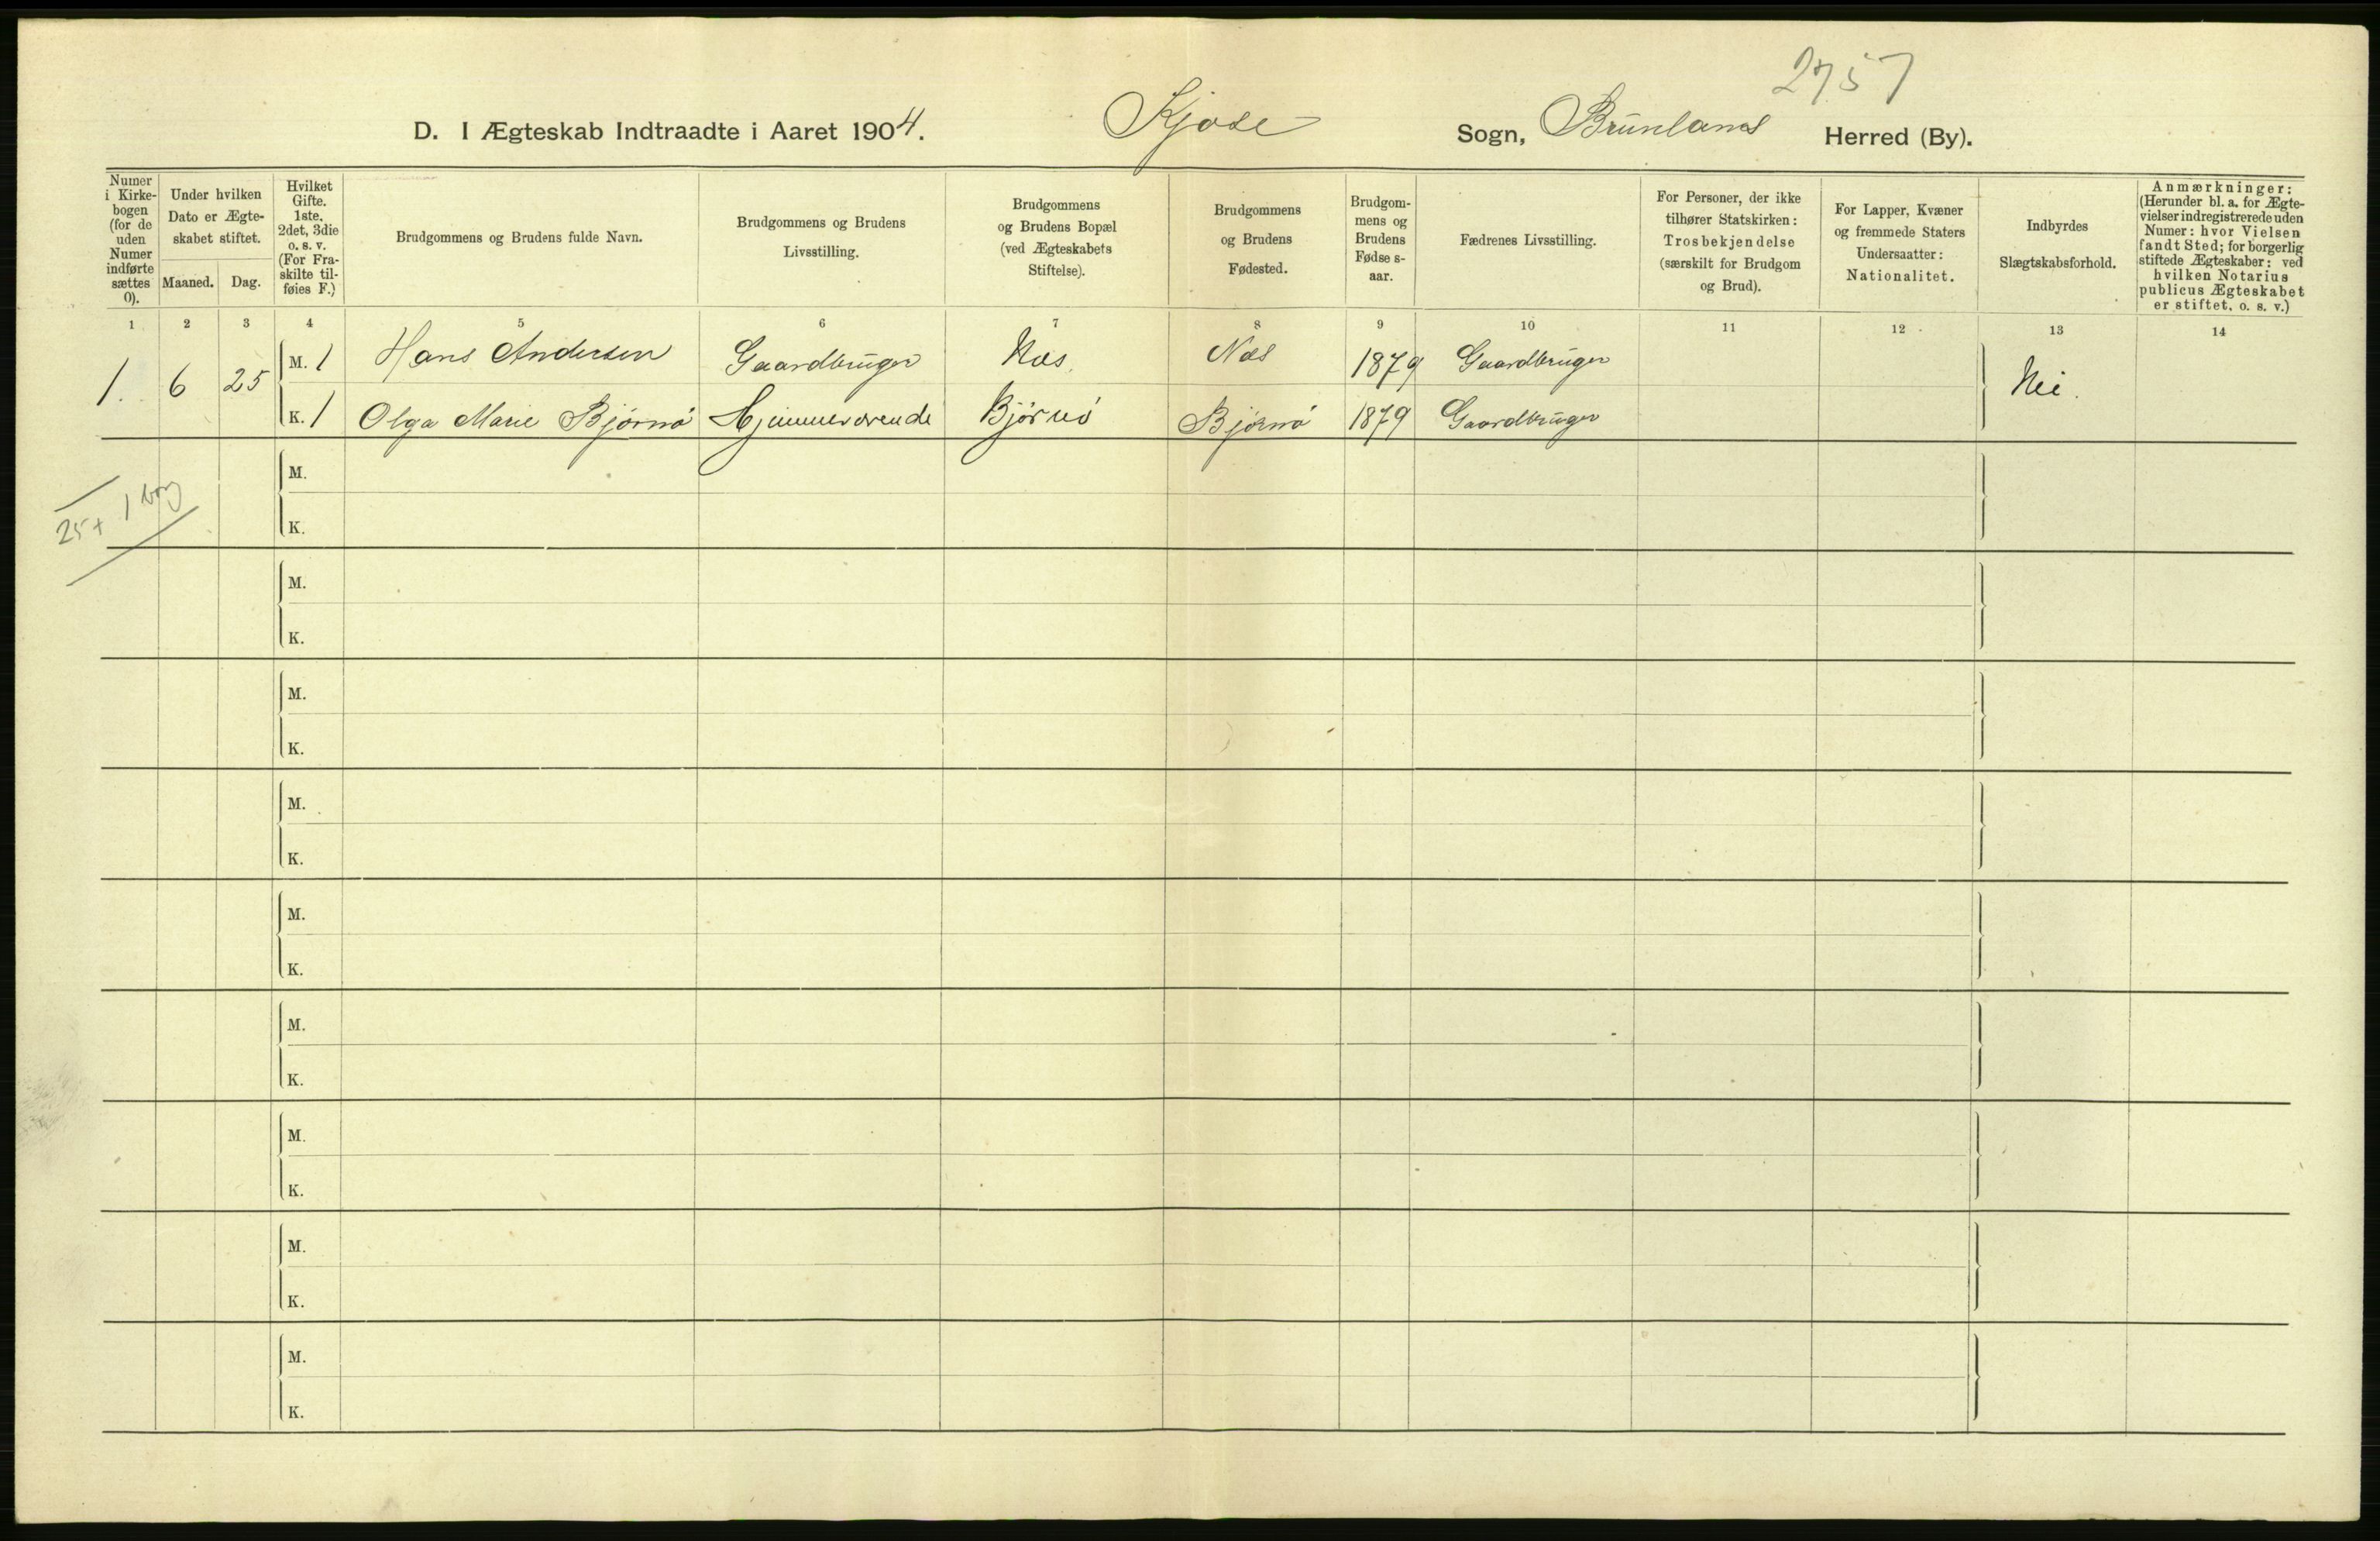 2757
D. I Ægteskab Indtraadte i Aaret 1904. Kjose Sogn, Brunlanes Herred (By).
Numer i Kirkebogen (for de uden Numer indførte sættes 0).
Under hvilken Dato er Ægteskabet stiftet.
Maaned. Dag.
Hvilket Gifte. 1ste, 2det, 3die o. s. v. (For Fraskilte tilføies F.)
Brudgommens og Brudens fulde Navn.
Brudgommens og Brudens Livsstilling.
Brudgommens og Brudens Bopæl (ved Ægteskabets Stiftelse).
Brudgommens og Brudens Fødested.
Brudgommens og Brudens Fødse s-aar.
Fædrenes Livsstilling.
For Personer, der ikke tilhører Statskirken: Trosbekjendelse (særskilt for Brudgom og Brud).
For Lapper, Kvæner og fremmede Staters Undersaatter: Nationalitet.
Indbyrdes Slægtskabsforhold.
Anmærkninger: (Herunder bl. a. for Ægtevielser indregistrerede uden Numer: hvor Vielsen fandt Sted; for borgerlig stiftede Ægteskaber: ved hvilken Notarius publicus Ægteskabet er stiftet, o. s. v.)
1 2 3 4 5 6 7 8 9 10 11 12 13 14
1. 6 25 M. 1 Hans Andersen Gaardbruger Næs. Næs 1879 Gaardbruger Nei.
K. 1 Olga Marie Bjørnø Hjemmeværende Bjørnø Bjørnø 1879 Gaardbruger
M.
25+ 1
K.
M.
K.
M.
K.
M.
K.
M.
K.
M.
K.
M.
K.
M.
K.
M.
K.